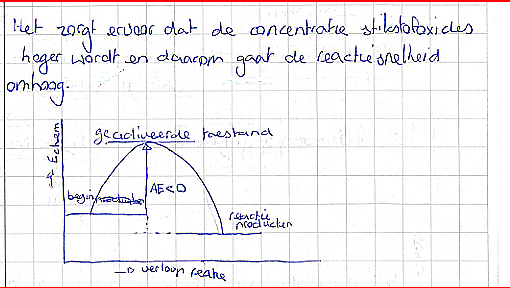 Het zorgt ervoor dat de concentratie stikstofoxides
hoger wordt en daarom gaat de reactiesnelheid
omhoog.
geactiveerde toestand
→ Echem
begin
ΔE<0
reactie
producten
→ verloop reatie